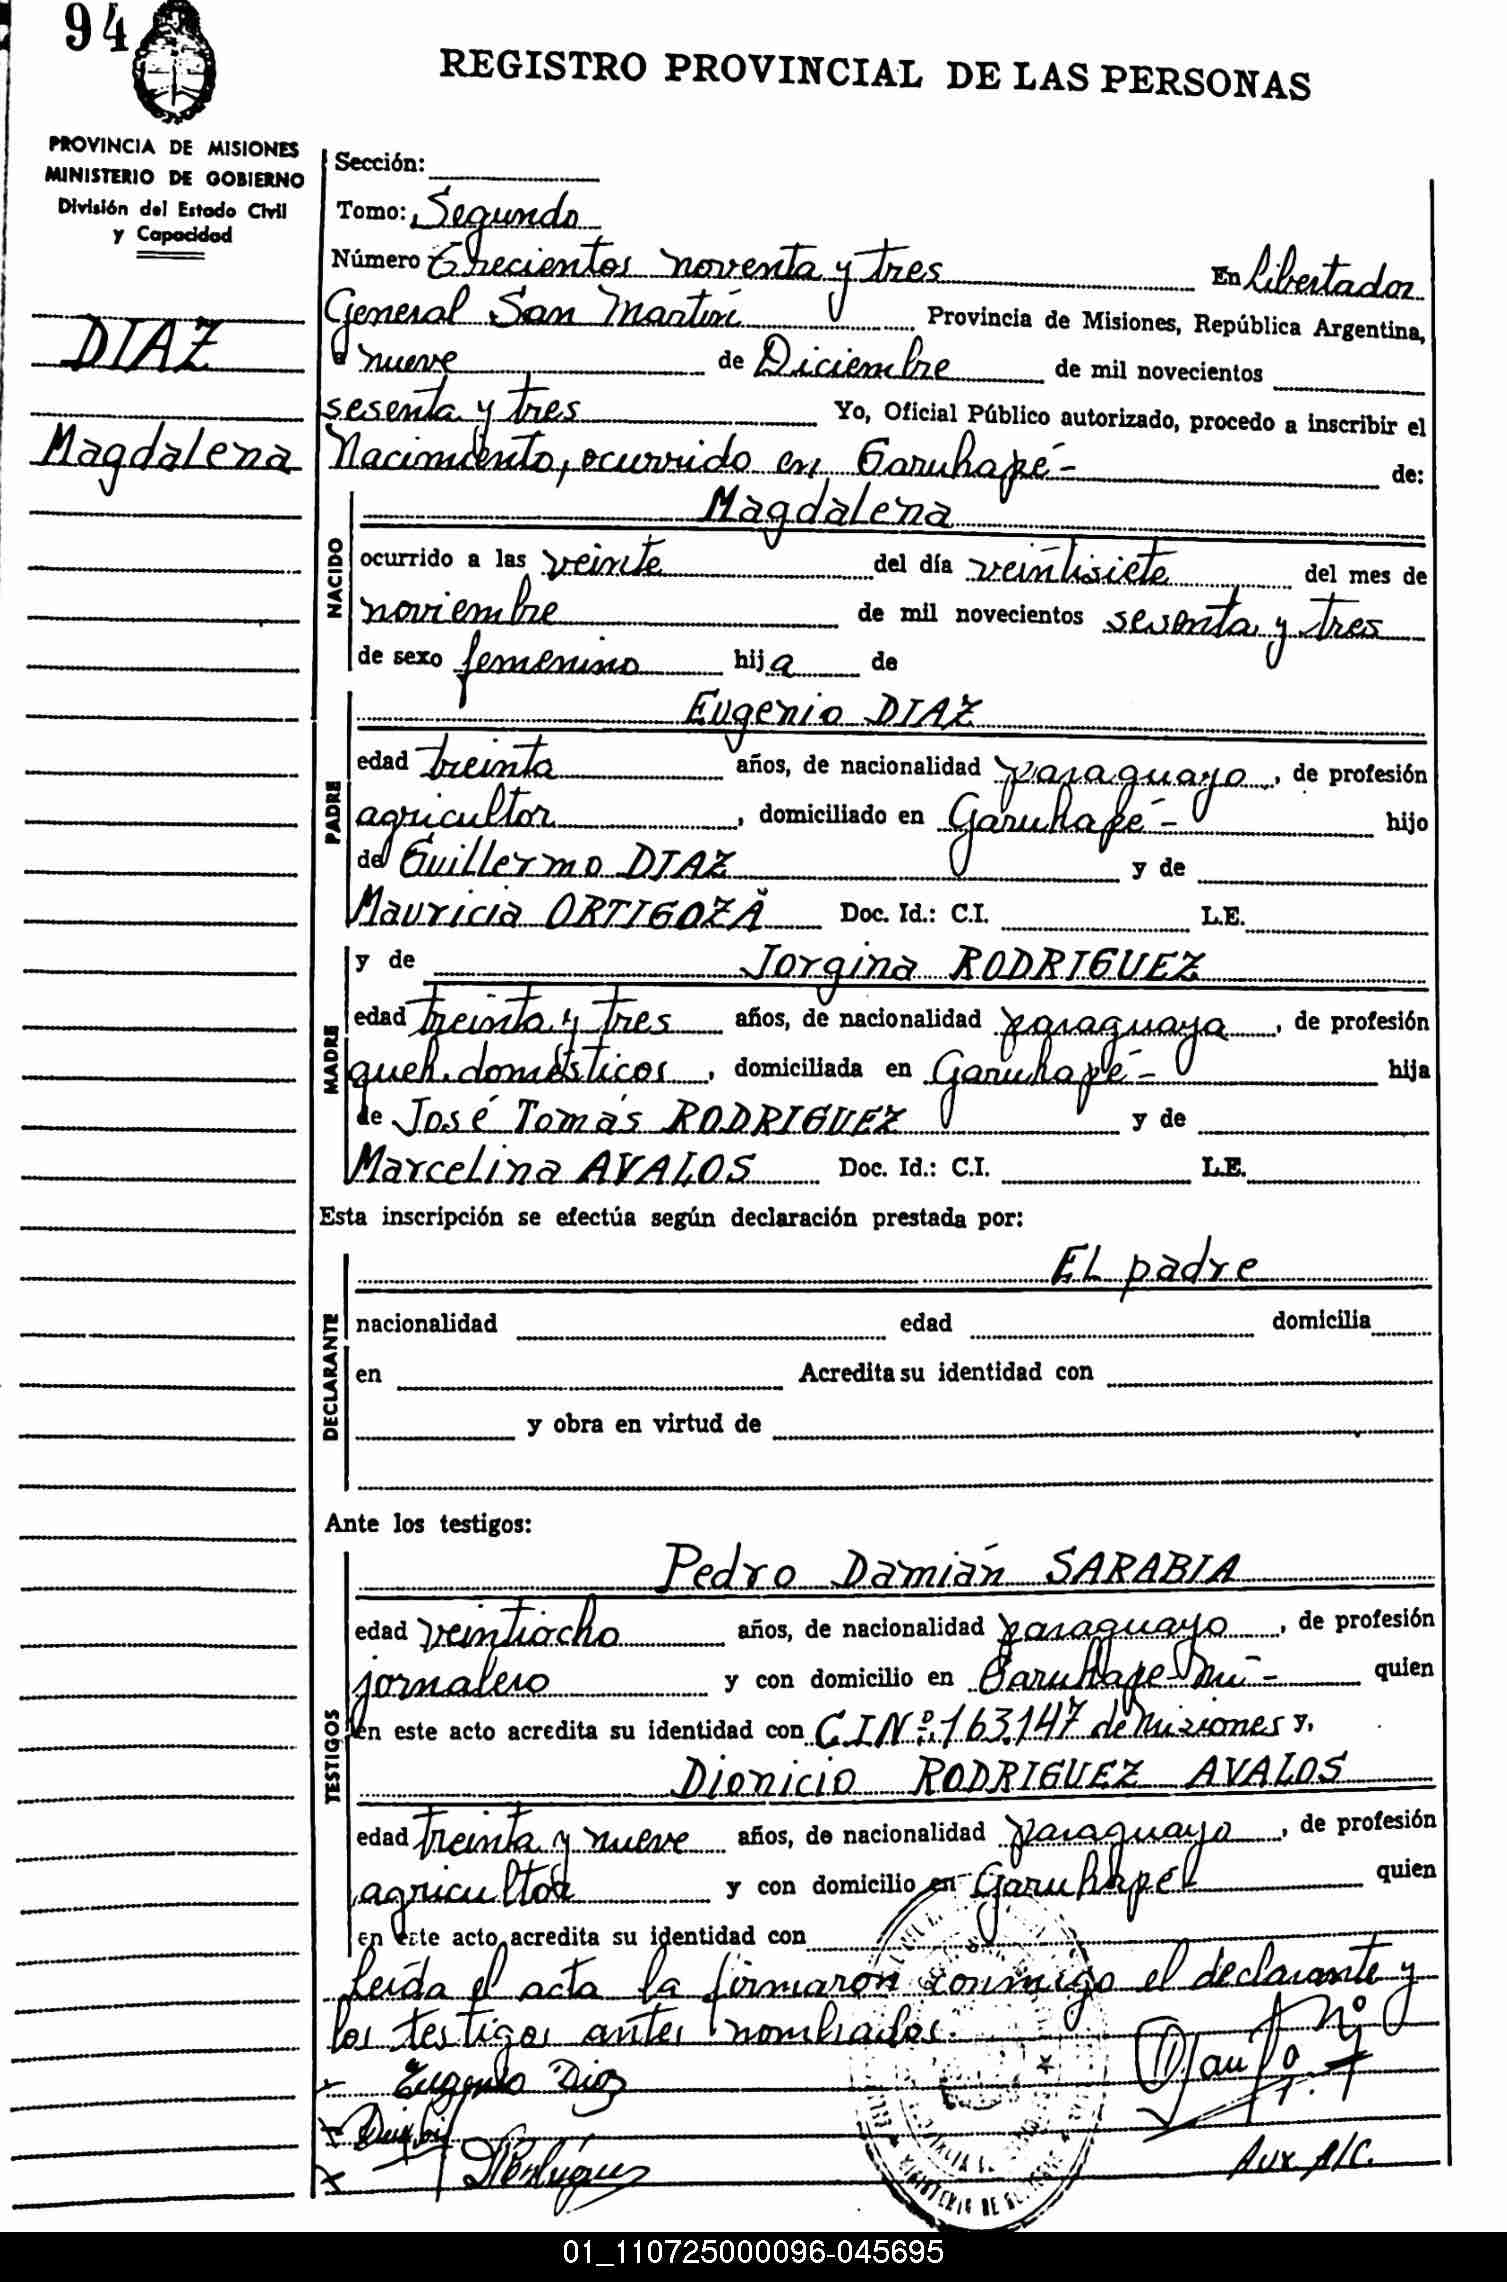 94
REGISTRO PROVINCIAL DE LAS PERSONAS
PROVINCIA DE MISIONES
MINISTERIO DE GOBIERNO
División del Estado Civil
y Capacidad
DIAZ
Magdalena
Sección:
Tomo: Segundo
Número Trecientos noventa y tres En Libertador
General San Martín Provincia de Misiones, República Argentina,
a nueve de Diciembre de mil novecientos
sesenta y tres Yo, Oficial Público autorizado, procedo a inscribir el
Nacimiento, ocurrido en Garuhapé- de:
NACIDO
Magdalena
ocurrido a las veinte del día veintisiete del mes de
noviembre de mil novecientos sesenta y tres
de sexo femenino hija de
PADRE
Eugenio DIAZ
edad treinta años, de nacionalidad paraguayo, de profesión
agricultor, domiciliado en Garuhapé- hijo
de Guillermo DIAZ y de
Mauricia ORTIGOZA Doc. Id.: C.I. L.E.
MADRE
y de Jorgina RODRIGUEZ
edad treinta y tres años, de nacionalidad paraguaya, de profesión
queh. domésticos, domiciliada en Garuhapé- hija
de José Tomás RODRIGUEZ y de
Marcelina AVALOS Doc. Id.: C.I. L.E.
Esta inscripción se efectúa según declaración prestada por:
DECLARANTE
EL padre
nacionalidad edad domicilia
en Acredita su identidad con
y obra en virtud de
Ante los testigos:
TESTIGOS
Pedro Damián SARABIA
edad veintiocho años, de nacionalidad paraguayo, de profesión
jornalero y con domicilio en Garuhape-mí- quien
en este acto acredita su identidad con C.I Nº: 163.147 de Misiones y,
Dionicio RODRIGUEZ AVALOS
edad treinta y nueve años, de nacionalidad paraguayo, de profesión
agricultor y con domicilio en Garuhapé quien
en este acto acredita su identidad con
Leída el acta la firmaron conmigo el declarante y
los testigos antes nombrados.
Eugenio Diaz
Aux A/C.
01_110725000096-045695